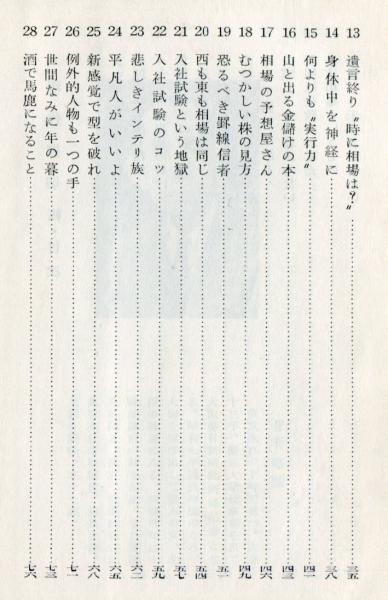 13 遺言終り〝時に相場は？〟……三五
14 身体中を神経に……三八
15 何よりも〝実行力〟……四一
16 山と出る金儲けの本……四三
17 相場の予想屋さん……四六
18 むつかしい株の見方……四九
19 恐るべき罫線信者……五一
20 西も東も相場は同じ……五四
21 入社試験という地獄……五七
22 入社試験のコツ……五九
23 悲しきインテリ族……六二
24 平凡人がいいよ……六五
25 新感覚で型を破れ……六八
26 例外的人物も一つの手……七一
27 世間なみに年の暮……七三
28 酒で馬鹿になること……七六